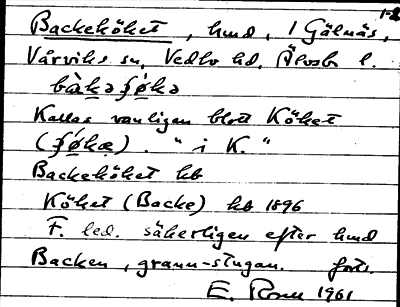 1-2
Backeköket, hmd, i Gälnäs,
Vårviks sn, Vedbo hd, Älvsb l.
bàkə ʃø̀kə
Kallas vanligen blott Köket
(ʃø̀kæ). "i K."
Backeköket hb
Köket (Backe) hb 1896
F. led. säkerligen efter hmd
Backen, grann-stugan. forts.
E. 1961